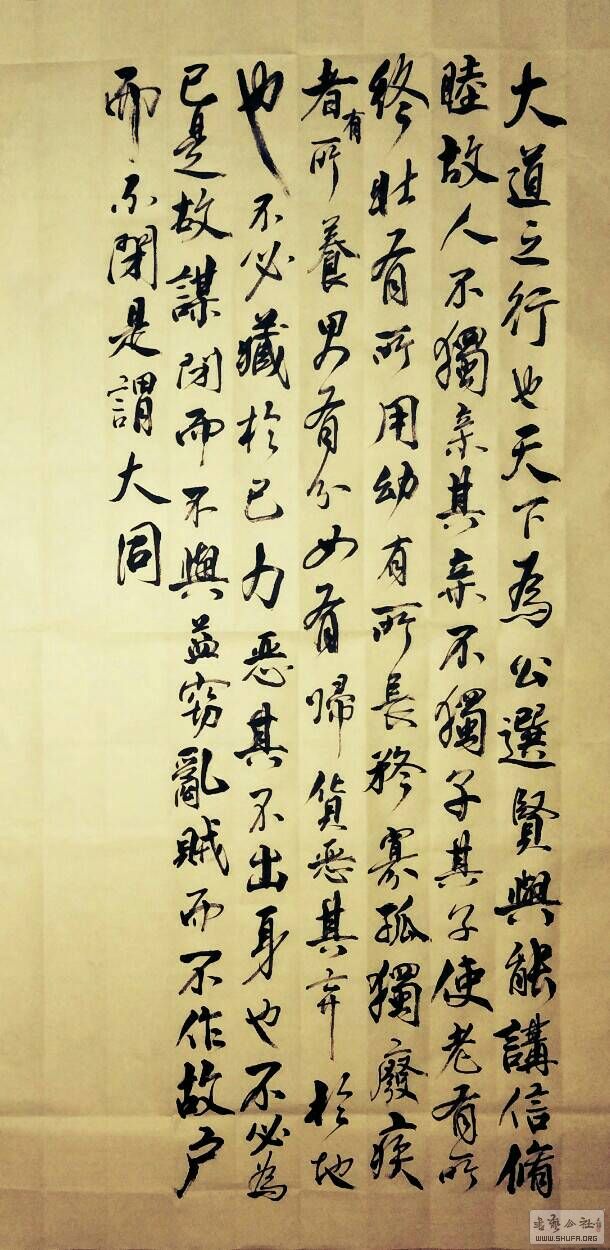 大道之行也天下為公選賢與能講信脩
睦故人不獨亲其亲不獨子其子使老有所
終壮有所用幼有所長矜寡孤獨廢疾
者有所養男有分女有歸貨恶其弃於地
也不必藏於己力恶其不出身也不必為
己是故謀閉而不興盗窃亂賊而不作故户
而不閉是謂大同
书艺公社
WWW.SHUFA.ORG